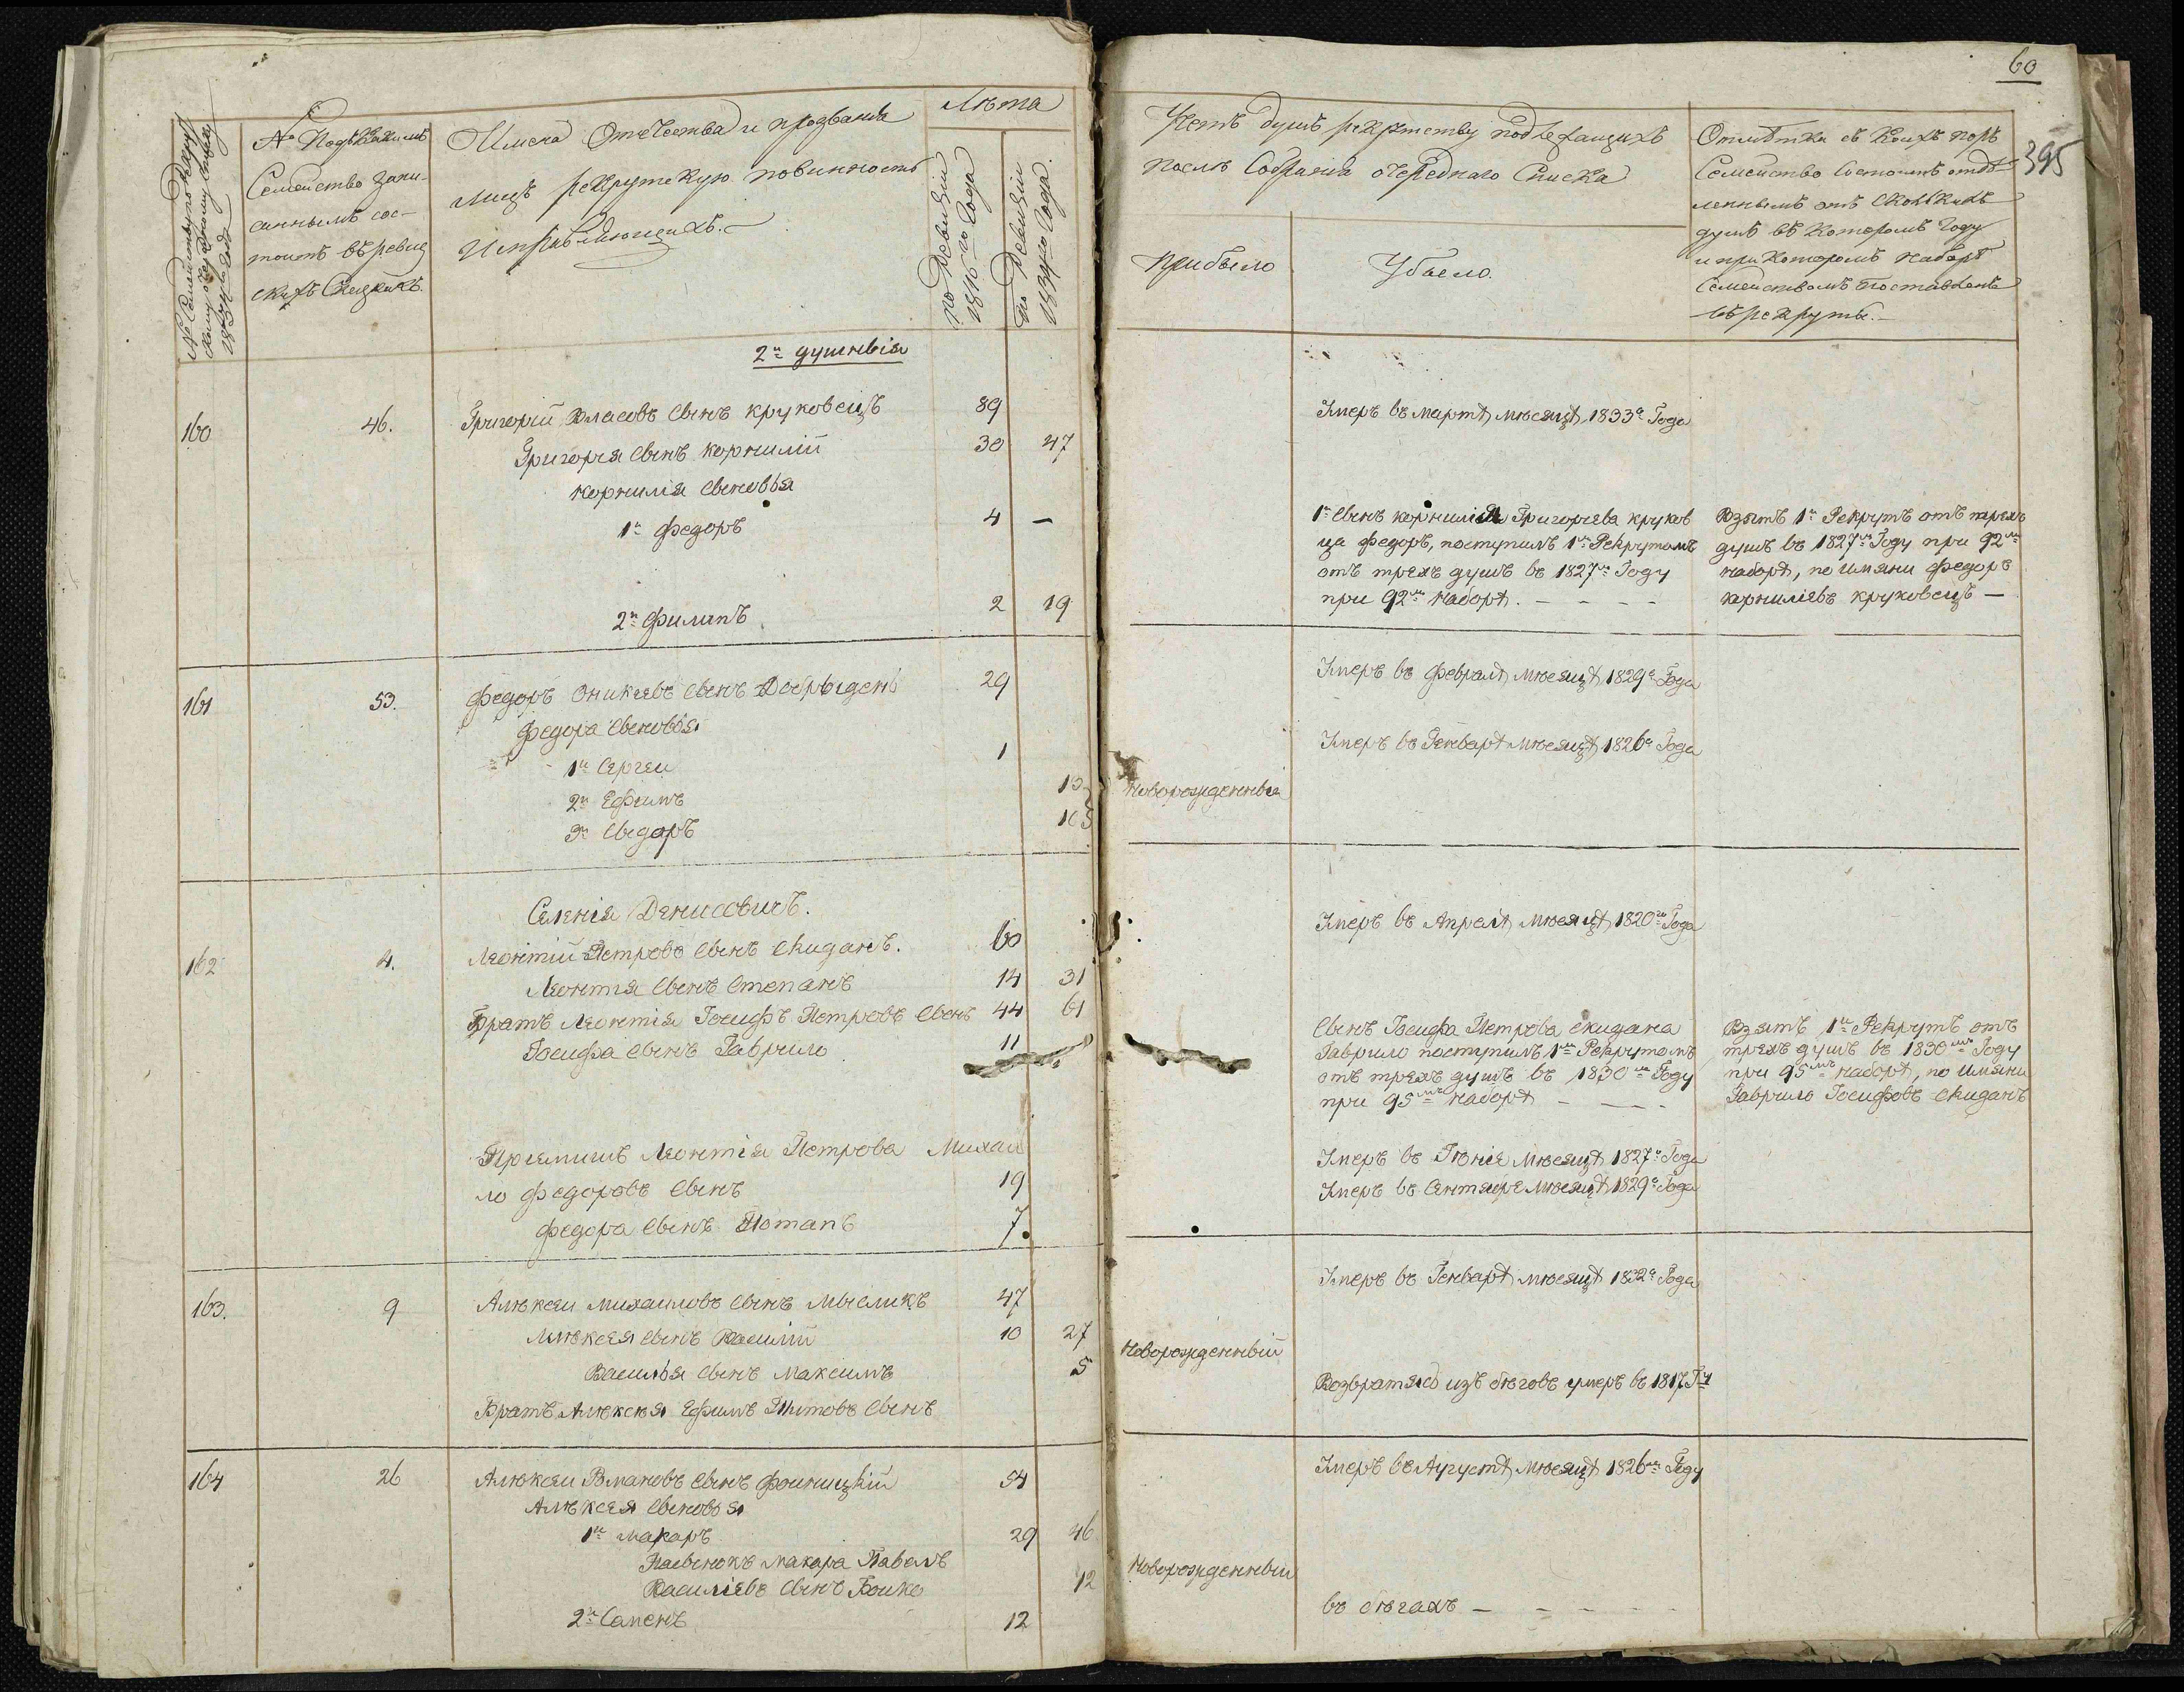 60
395
№ Семейству по рекрут
скому очередному списку
1834го года
№ Подъ какимъ
Семейство запи-
саннымъ сос-
тоитъ въ ревиз
скихъ Сказкахъ.
Имена Отчества и прозванiя
лицъ рекрутскую повинность
Исправляющихъ.
Лѣта
по Ревизiи
1816го Года
по Ревизiи
1834го Года.
Счетъ душъ рекрутству подлежащихъ
послѣ Собранiя очереднаго Списка
прибыло
Убыло.
Отмѣтка съ коихъ поръ
Семейство Состоитъ отдѣ-
леннымъ отъ сколькихъ
душъ въ которомъ Году
и при которомъ Наборѣ
Семействомъ поставленъ
въ рекруты.
2хъ душныiя
160
46.
Григорiй Власовъ Сынъ круковецъ
89
Умеръ въ мартѣ мѣсяцѣ 1833го Года
Григорiя Сынъ корнилiй
30
47
корнилiя Сыновья
1й Федоръ
4
—
1й Сынъ корнилiя Григорьева круков
ца Федоръ, поступилъ 1мъ Рекрутомъ
отъ трехъ душъ въ 1827м Году
при 92мъ Наборѣ. — — — —
Взятъ 1й Рекрутъ отъ трехъ
душъ въ 1827м Году при 92мъ
наборѣ, по имяни Федоръ
корнилiевъ круковецъ —
2й Филипъ
2
19
161
53.
Федоръ Оникѣевъ Сынъ Добрыдень
29
Умеръ въ Февралѣ мѣсяцѣ 1829го Года
Федора Сыновья
1й Сергеи
1
Умеръ въ Генварѣ мѣсяцѣ 1826го Года
2й Ефимъ
13
Новорожденныя
3й Сидоръ
Селенiя Денисовичъ.
162
4.
Леонтiй Петровъ Сынъ Скиданъ.
60
Умеръ въ Апрелѣ мѣсяцѣ 1820го Года
Леонтiя Сынъ Степанъ
14
31
Братъ Леонтiя Iосифъ Петровъ Сынъ
44
61
Iосифа Сынъ Гаврило
11
Сынъ Iосифа Петрова скидана
Гаврило поступилъ 1мъ Рекрутомъ
отъ трехъ душъ въ 1830м Году
при 95мъ наборѣ — — —
Взятъ 1й Рекрутъ отъ
трехъ душъ въ 1830мъ Году
при 95мъ наборѣ, по имяни
Гаврило Iосифовъ скиданъ
Прiемышъ Леонтiя Петрова Михаи
ло Федоровъ Сынъ
19
Умеръ въ Iюнiя мѣсяцѣ 1827го Года
Федора Сынъ Потапъ
7.
Умеръ въ Сентябре мѣсяцѣ 1829го Года
163.
9
Алѣксеи Михаиловъ Сынъ Мысликъ
47
Умеръ въ Генварѣ мѣсяцѣ 1832го Года
Алѣксея Сынъ Василiй
10
27
Василья Сынъ Максимъ
5
Новорожденный
Братъ Алѣксѣя Ефимъ Титовъ Сынъ
Возвратясь изъ бѣговъ умеръ въ 1817 Гу
164
26
Алѣксеи Романовъ Сынъ Фоиницкiй
54
Умеръ въ Аугустѣ мѣсяцѣ 1826мъ Году
Алѣксея Сыновья
1й Макаръ
29
46
Пасынокъ Макара Павелъ
Василiевъ Сынъ Боико
12
Новорожденныи
2й Семенъ
12
въ бѣгахъ — — — —